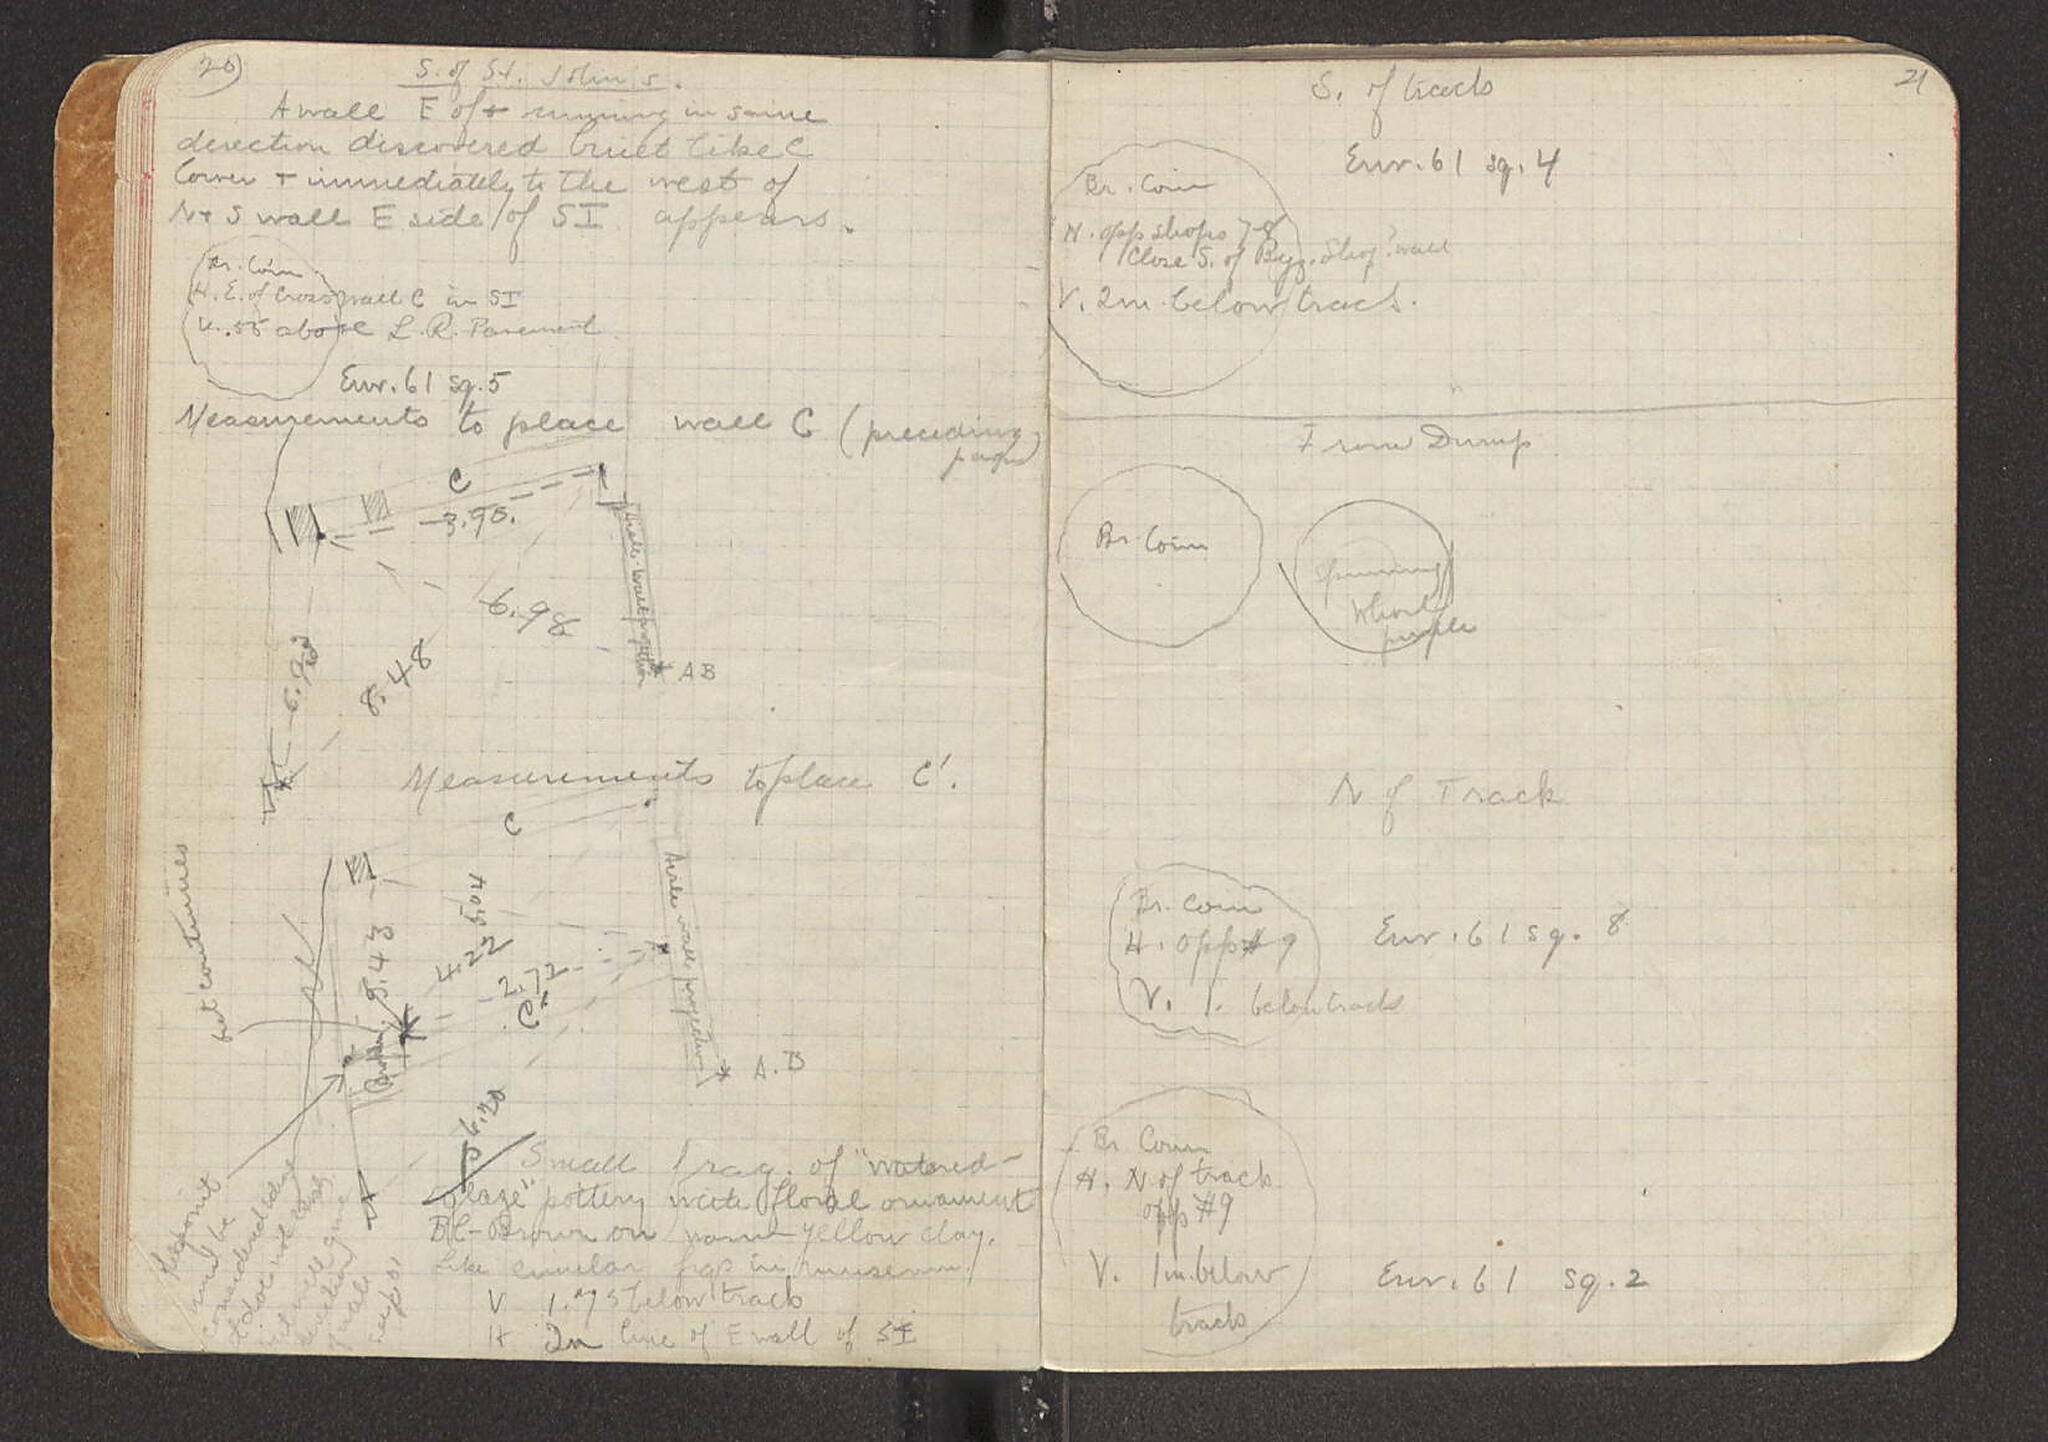 20)
S. of St. John's.
A wall E of + running in same
direction discovered built like C
Corner + immediately to the west of
N + S wall E side of SI appears.
Br. Coin
H. E. of Cross wall C in SI
V. .55 above L.R. Pavement
Env. 61 sq. 5
Measurements to place wall C (preceding
page)
C
3.90.
6.98
8.48
Aisle wall projection
AB
Measurements to place C'.
C
but continues
5.04
5.43
4.22
2.72
C"
Aisle wall projection
A.B
6.20
Small frag. of "watered-
glaze" pottery with floral ornament
Bl-Brown on yellow clay.
Like similar frgs in museum
V 1.75 below track
H In line of E wall of SI
must be
considered also
21
S. of track
Env. 61 sq. 4
Br. Coin
H. opp shops 7-8
Close S. of Byz. Shop? wall
V. 2m. below track.
From Dump
Br. Coin
Spinning
Whorl
purple
N of Track
Br. Coin
H. opp # 9
V. 1. below track
Env. 61 sq. 8
Br Coin
H. N of track
opp #9
V. 1m. below
track
Env. 61 sq. 2